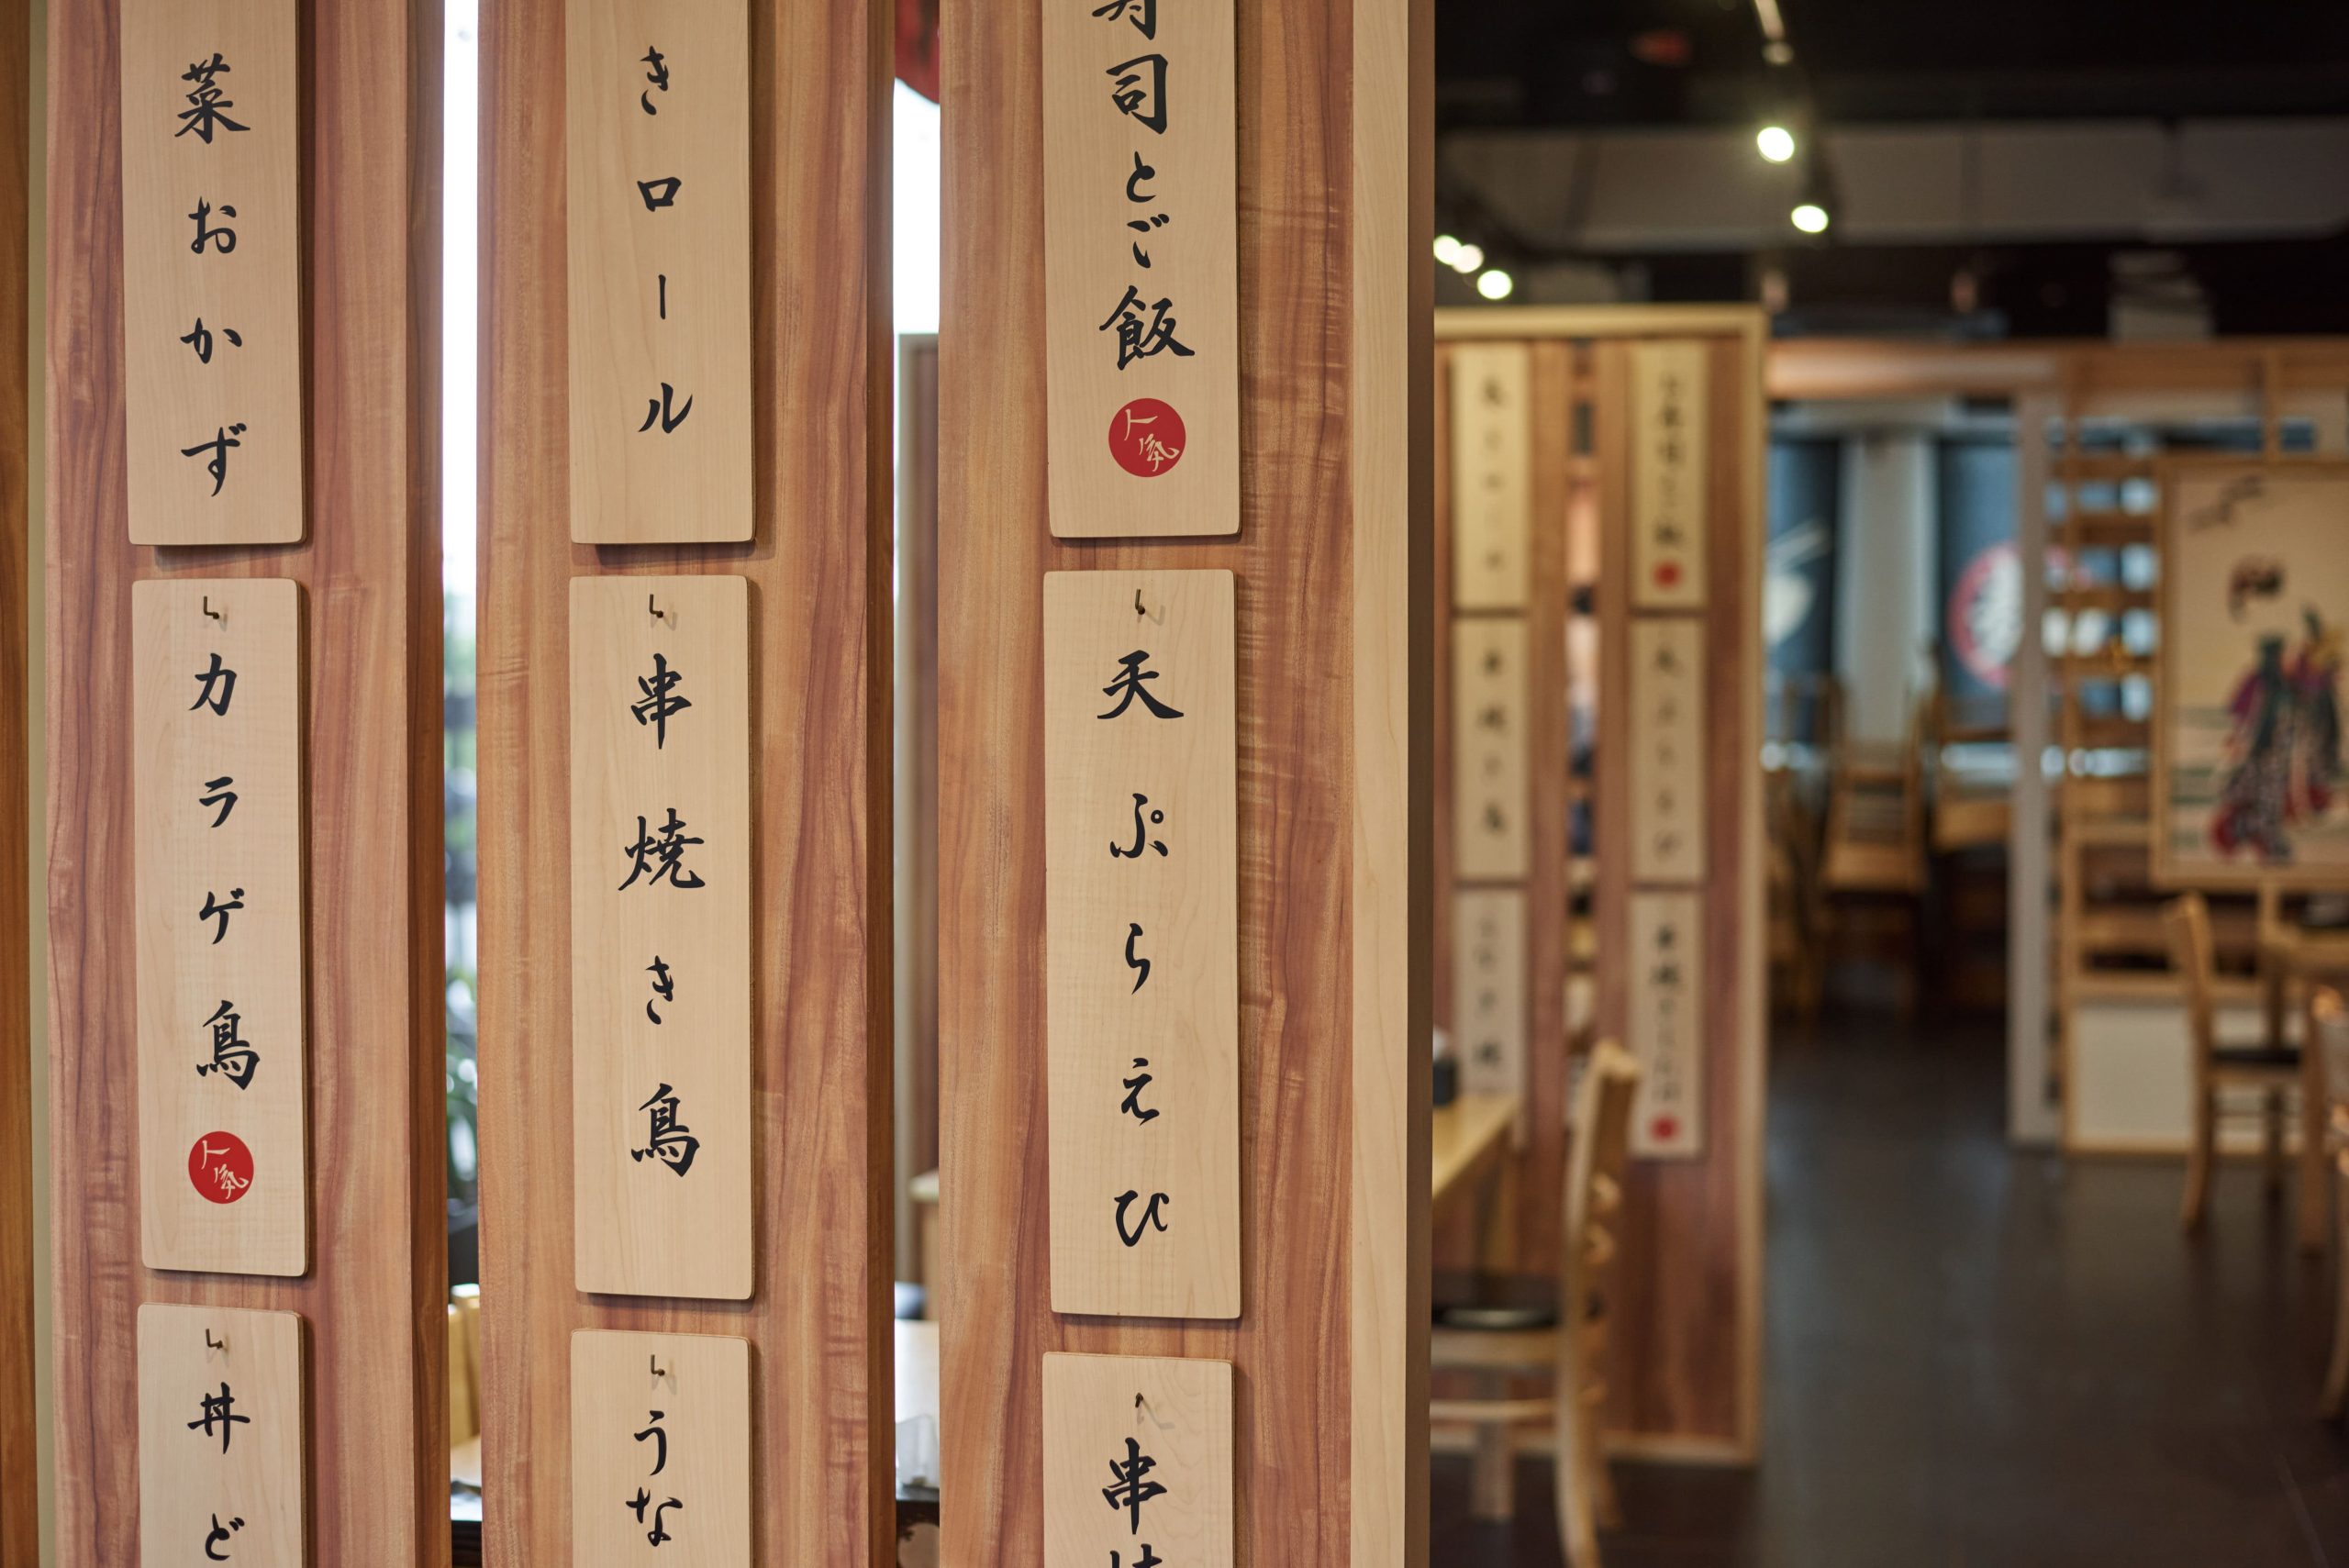 司とご飯
人気
天ぷらえび
串
きロール
串焼き鳥
うな
菜おかず
カラゲ鳥
人気
丼ど